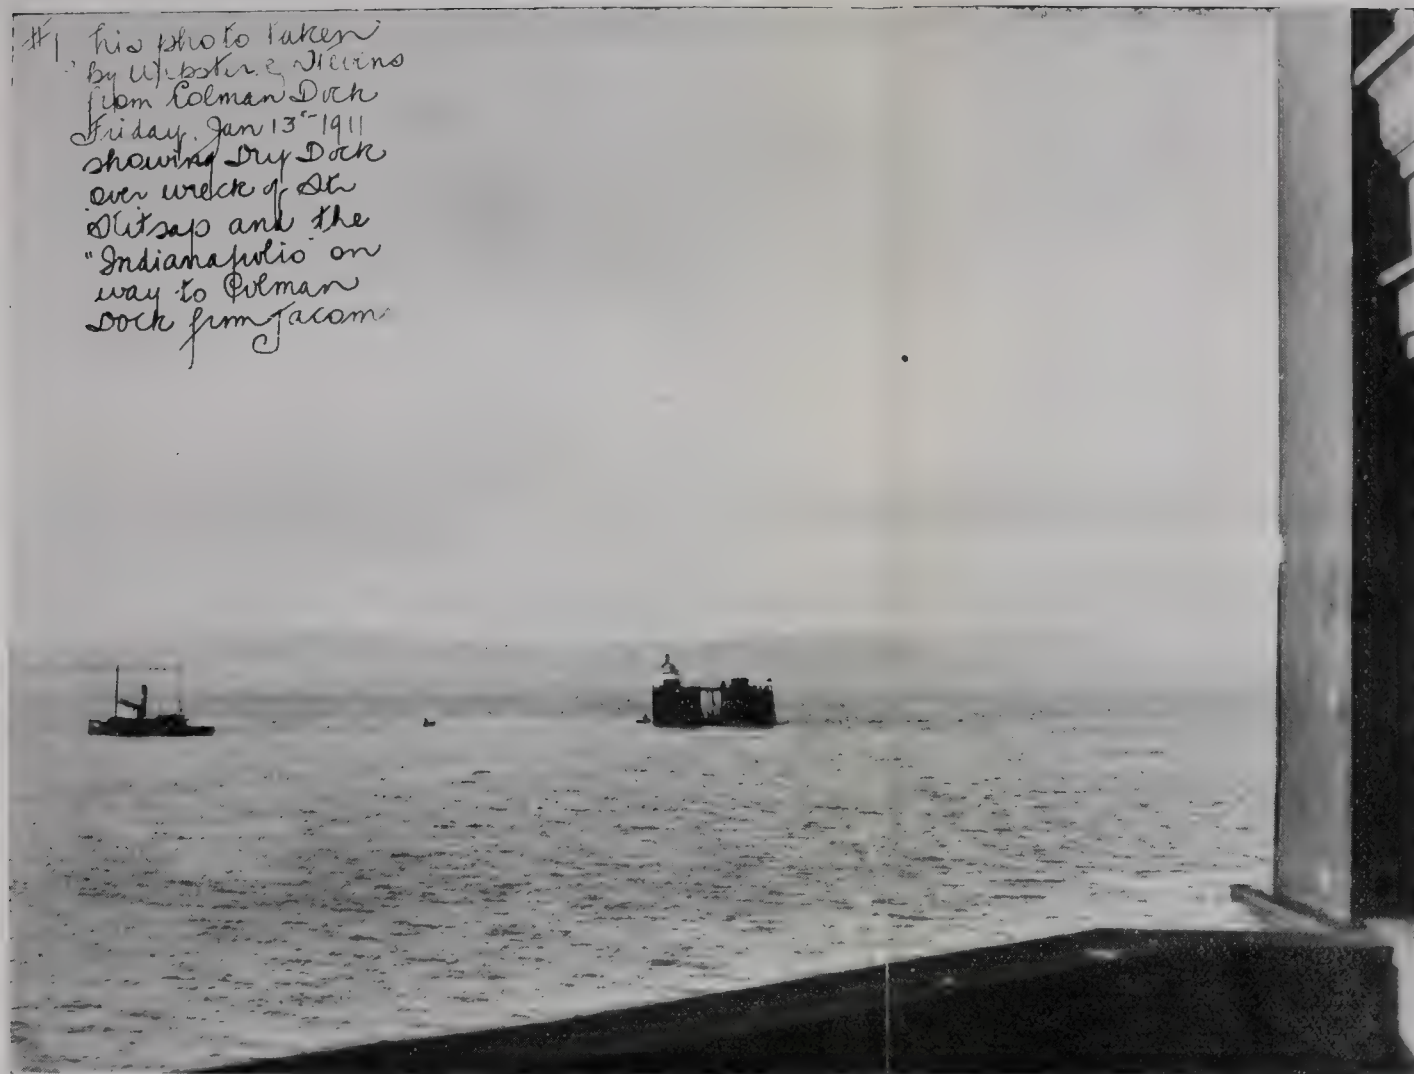 #1 This photo taken
by Webster & Stevens
from Colman Dock
Friday. Jan 13th-1911
showing Dry Dock
over wreck of Str
Kitsap and the
"Indianapolis" on
way to Colman
Dock from Tacoma